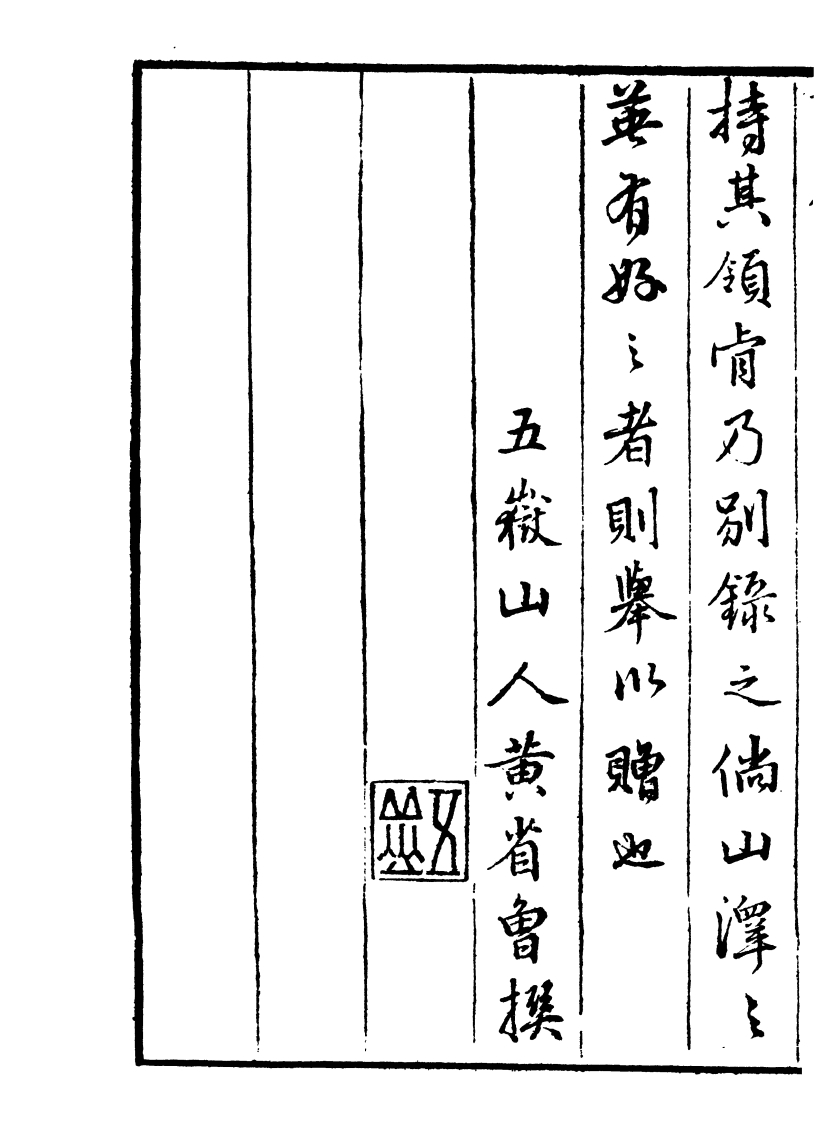 持其領肯乃別錄之倘山澤之
英有好之者則舉以贈也
五嶽山人黃省曾撰